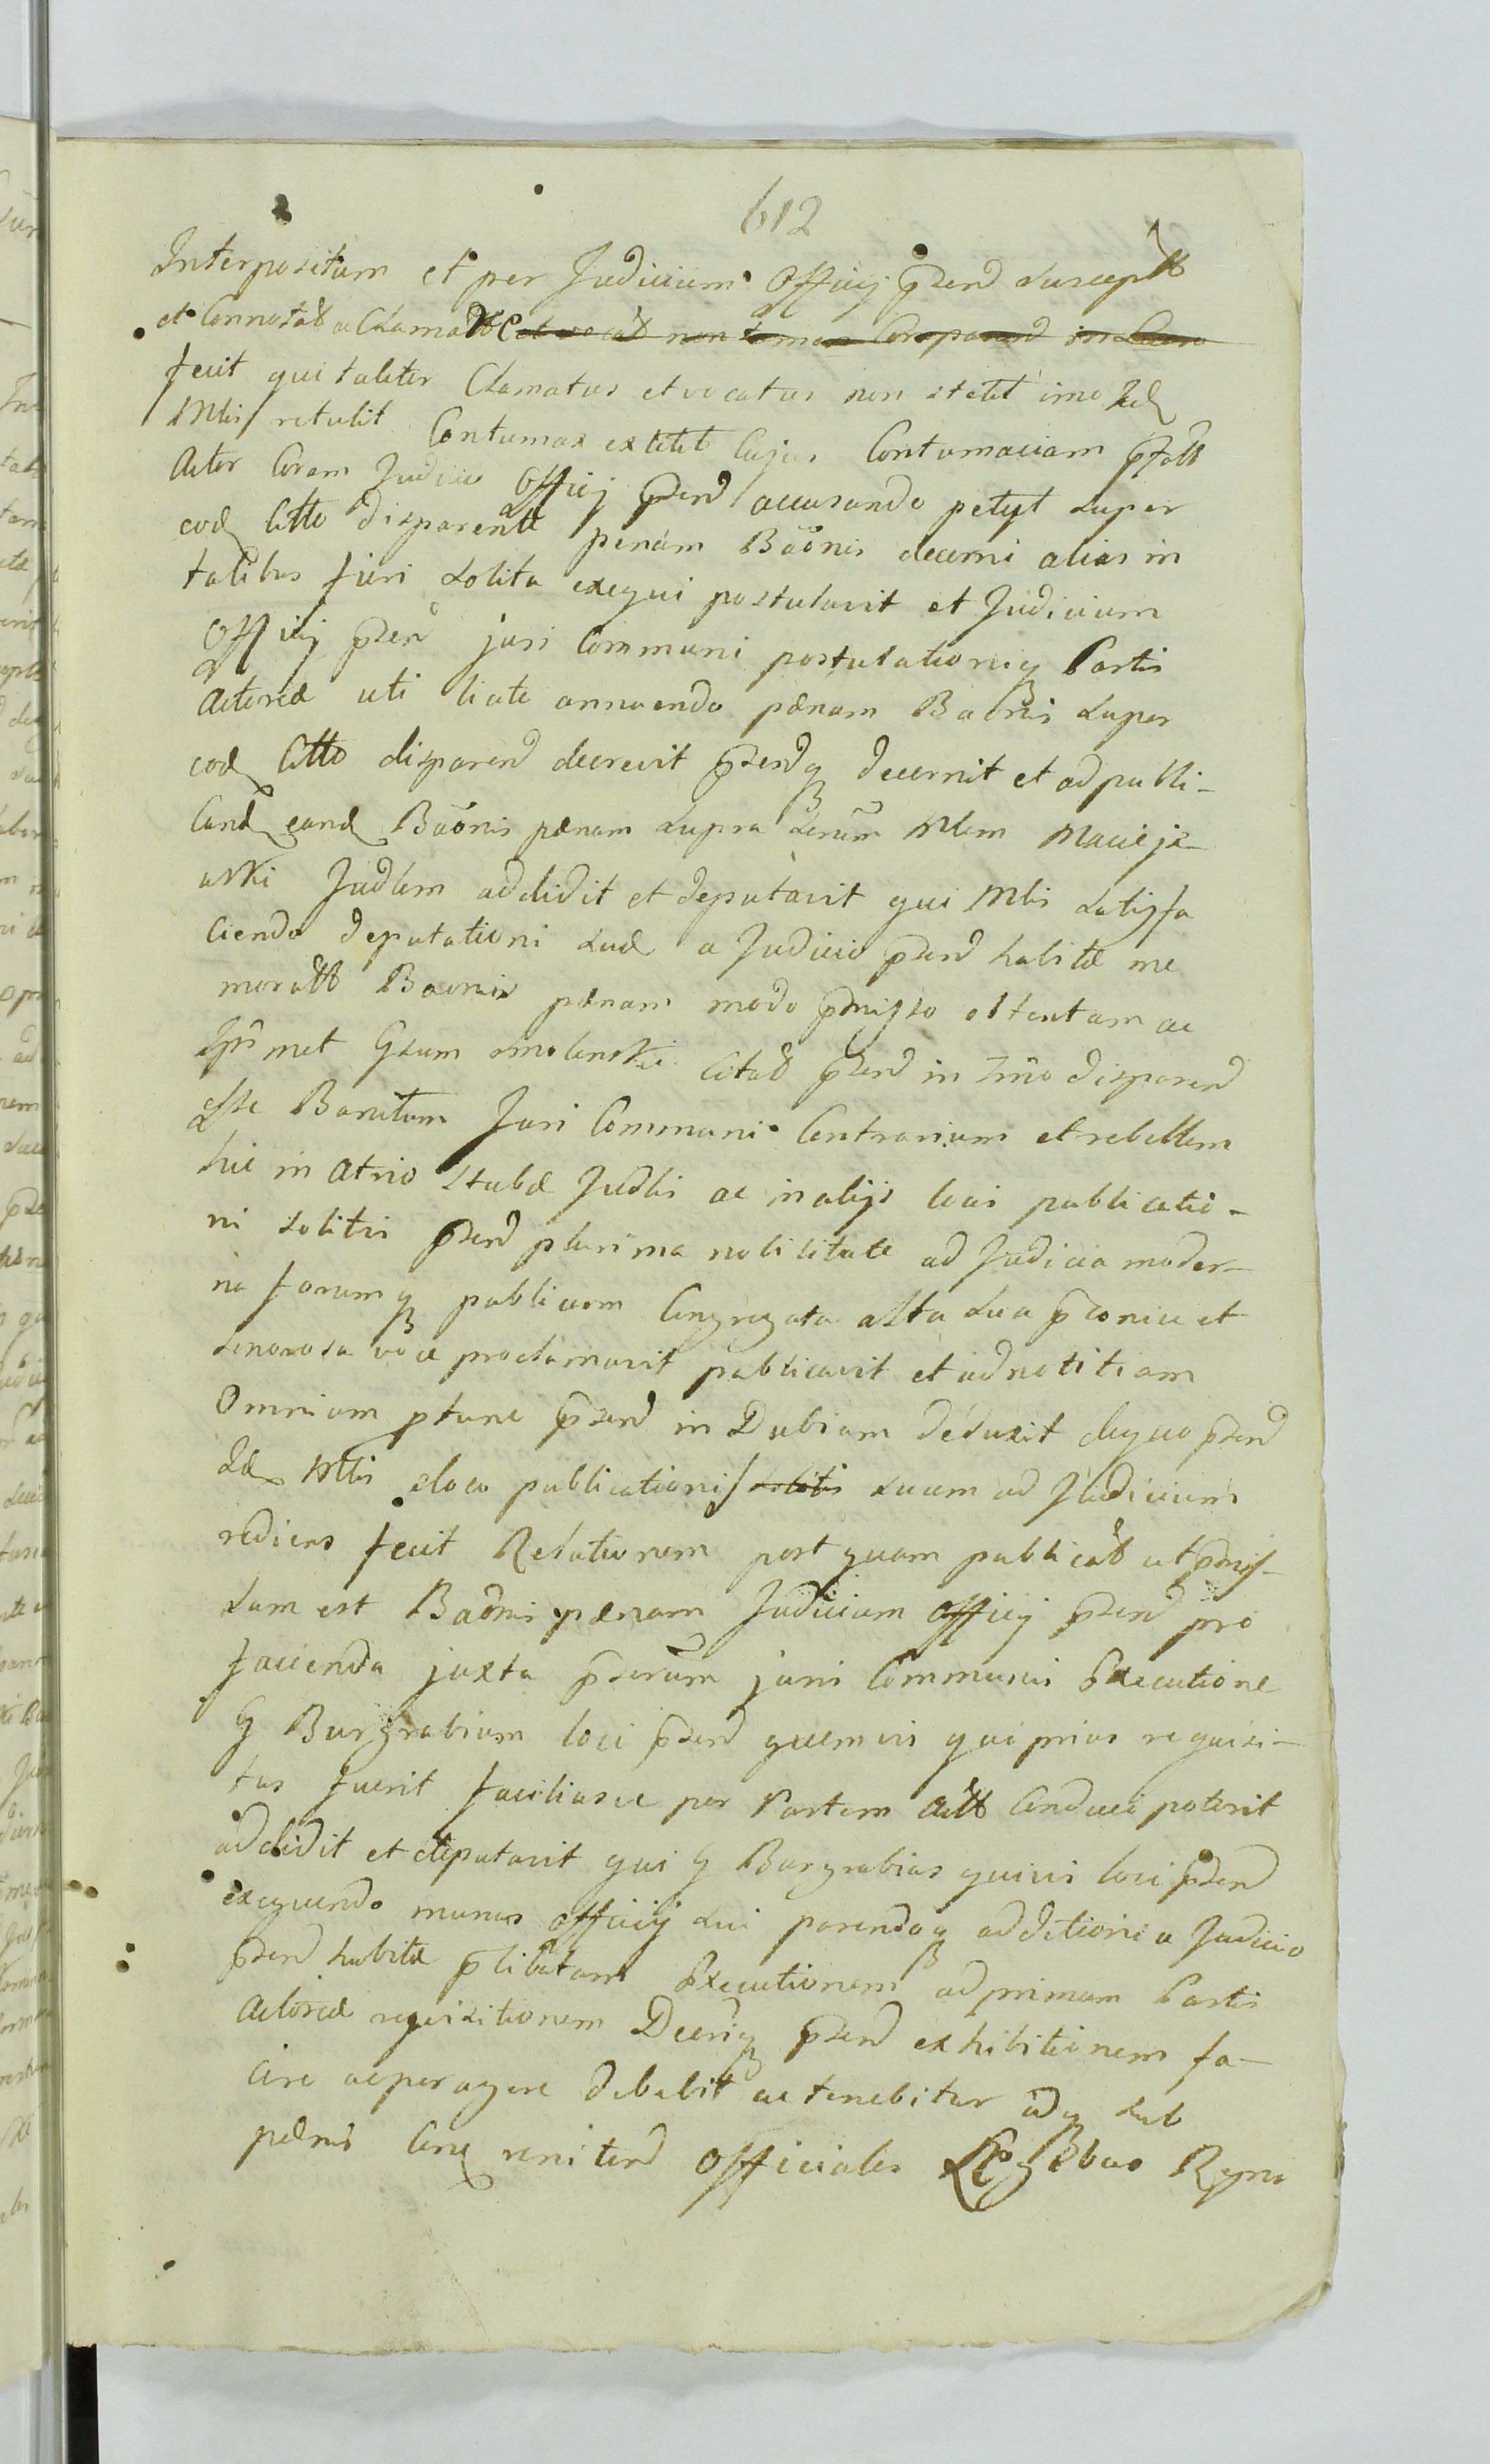 612
Interpositum et per Judicium Officij pñd suscept
et Connotað acclamað et vocað non tamen Comparend
fecit qui taliter Clamatus et vocatus non stetit imo
Mlis retulit Contumax extitit Cujus Contumaciam
Actor Coram Judicio Officij pñd accusando petyt super
eod Ctto disparente penam Bãonis decerni alias in
talibus fieri solita exequi postulavit et Judicium
Officij pñd juri Communi postulationiq Partis
Actoreæ uti licite annuendo pænam Baõnis super
eod Ctto disparend decrevit pñdq decernit et ad publi-
cand eand Baõnis pænam supra Mlem Macieje-
wski Judlem addidit et deputavit qui Mlis satisfa
ciendo deputationi suæ a Judicio pñd habitæ me
morað Baonis pænam modo pmisso obtentam ac
Ipm met Gsum Smolenski Citað pñd in Tñno disparend
esse Banitum Juri Communi Contrarium et rebellem
hic in atrio stubæ Judlis ac in alijs locis publicatio-
ni solitis pñd plurima nobilitate ad Judicia moder-
na forumq publicum Congregata alta sua pconica et
sonorosa voce proclamavit publicavit et ad notitiam
Omnium ptunc pñd in Dubiam deduxit deque pñd
Id Mlis eloco publicationi solitis suam ad Judicium
rediens fecit Relationem post quam publicað ut pmis-
sum est Baõnis pænam Judicium Officij pñd pro
facienda juxta pscrum juris Communis Executione
G Burgrabium loci pñd quemvis qui prius requisi-
tus fuerit faciliusve per Partem Actt Conduci poterit
addidit et deputavit qui G Burgrabius quivis loci pñd
exequendo munus officij sui parendoq additioni a Judicio
pñd habitæ plibatam Executionem ad primam Partis
Actoreæ requisitionem Decriq pñd exhibitionem fa-
cere ac peragere debebit ac tenebitur idq sub
pænis Cona renitend Officiales Legibus Regni